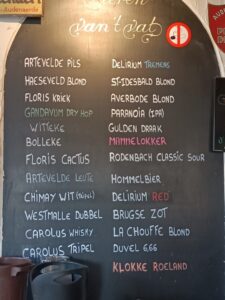 Audenaarde
Bieren
van't vat
ARTEVELDE PILS
HAESEVELD BLOND
FLORIS KRIEK
GANDAVUM DRY HOP
WITTEKE
BOLLEKE
FLORIS CACTUS
ARTEVELDE LEUTE
CHIMAY WIT (TRIPEL)
WESTMALLE DUBBEL
CAROLUS WHISKY
CAROLUS TRIPEL
DELIRIUM TREMENS
ST-IDESBALD BLOND
AVERBODE BLOND
PARANOIA (IPA)
GULDEN DRAAK
MAMMELOKKER
RODENBACH CLASSIC SOUR
HOMMELBIER
DELIRIUM RED
BRUGSE ZOT
LA CHOUFFE BLOND
DUVEL 6,66
KLOKKE ROELAND